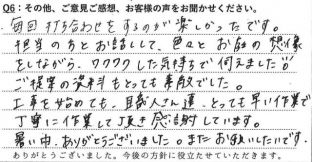 Q6：その他、ご意見ご感想、お客様の声をお聞かせください。
毎回打ち合わせをするのが楽しかったです。
担当の方とお話しして、色々とお庭の想像
をしながら、ワクワクした気持ちで伺えました!!
ご提案の資料もとっても素敵でした。
工事を始めても、職人さん達、とっても早い作業で
丁寧に作業して頂き感謝しています。
暑い中、ありがとうございました。またお願いしたいです。
ありがとうございました。今後の方針に役立たせていただきます。